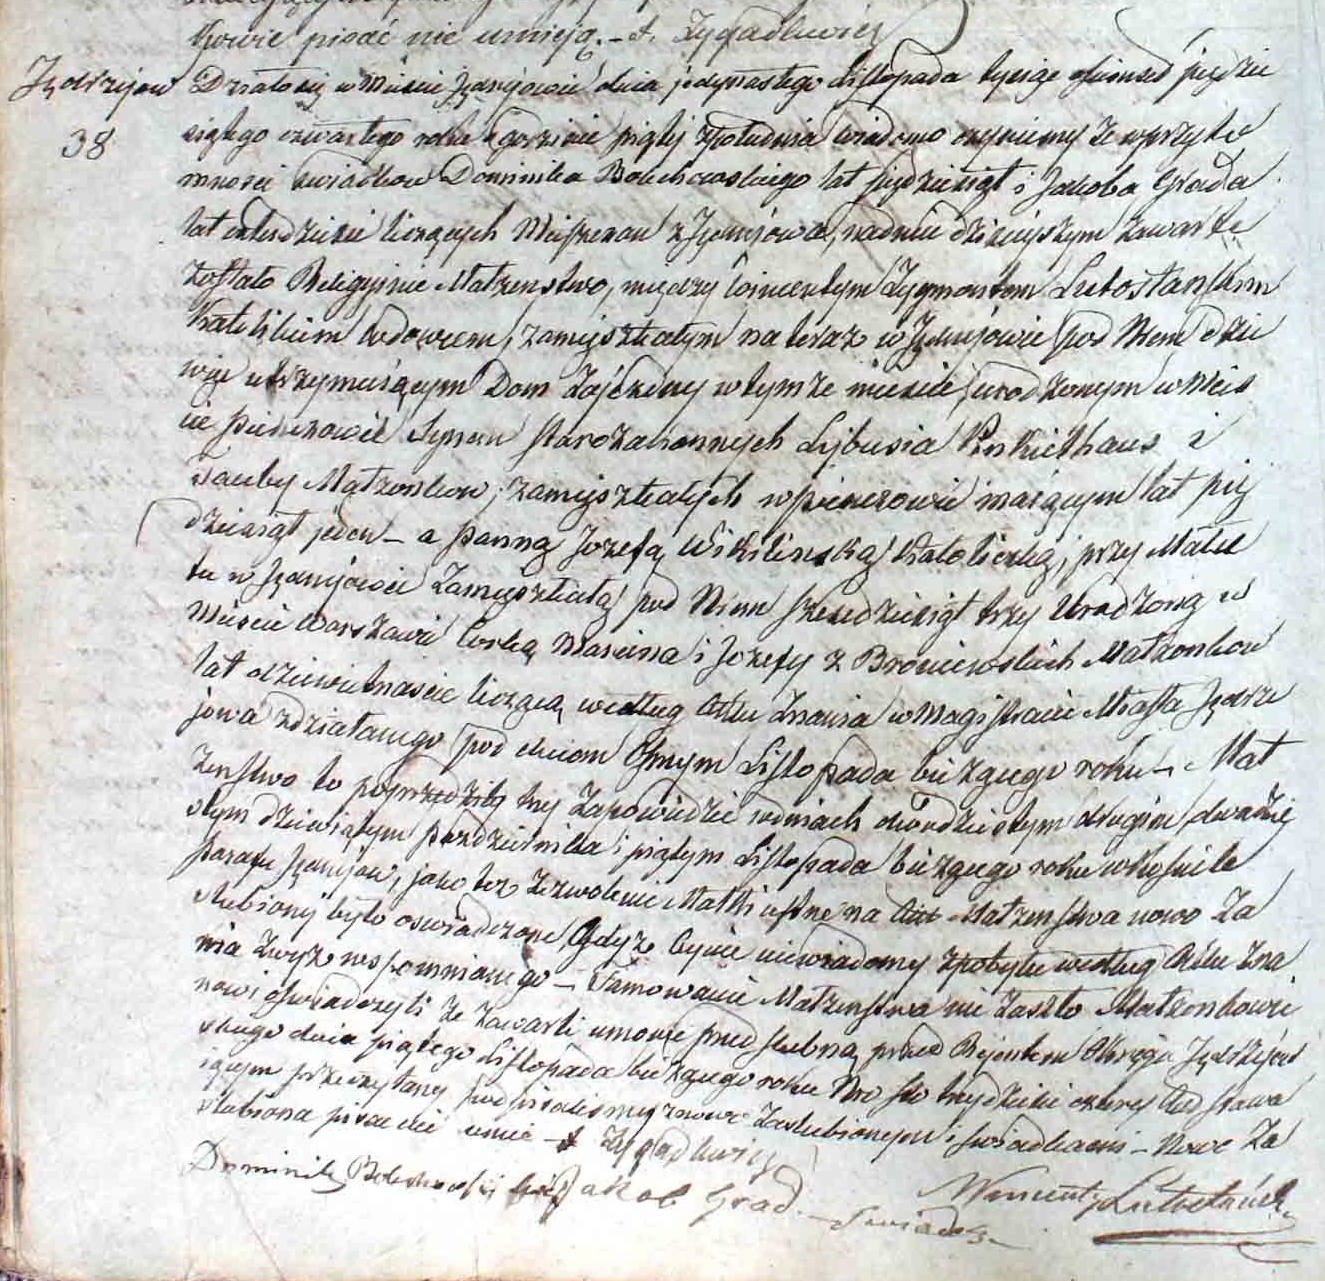 kowie pisać nie umieją. – A. Zygadlewicz
Jędrzejow Działo się w Mieście Jędrzejowie dnia jedynastego Listopada tysiąc ośmset pięćdzie
38 siątego czwartego roku o godzinie piątej z południa wiadomo czyniemy że w przyto
mności świadkow Dominika Bolechowskiego lat pięćdziesiąt i Jakoba Grada
lat czterdzieści liczących Mieszczan z Jędrzejowa, na dniu dzisiejszym zawarte
zostało Religijnie Małżenstwo, między Wincentym Zygmontem Lubostańskim
Katolikiem Wdowcem, zamieszkałym na teraz w Jędrzejowie pod Nrem dzie
więć utrzymującym Dom Zajezdny w tymże mieście, urodzonym w Mieś
cie Pińczowie Synem Starozakonnych Lejbusia i
Tauby Małżonkow, zamieszkałych w Pinczowie mającym lat pięć
dziesiąt jeden – a Panną Jozefą Wikilinską Katoliczką, przy Matce
tu w Jędrzejowie Zamieszkałą pod Nrem sześćdziesiąt trzy Urodzoną w
Mieście Warszawie Corką Marcina i Jozefy z Broniewskich Małżonkow
lat dziewietnaście liczącą według Aktu Znania w Magistracie Miasta Jędrze
jowa zdziałanego pod dniem Osmym Listopada bieżącego roku – Mał
żeństwo to poprzedziły trzy Zapowiedzie w dniach dwódziestym drugim, dwudzie
stym dziewiątym pazdziernika i piątym Listopada bieżącego roku w Kościele
Parafii Jędrzejow, jako też Zezwolenie Matki ustne na Akt Małżenstwa nowo Za
slubionej było oswiadczone Gdyż Ojciec niewiadomy z pobytu według Aktu Zna
nia Zwyż wspomnianego – Tamowanie Małżenstwa nie Zaszło Małżonkowie
nowi Oświadczyli że Zawarli umowę przed slubną przed Rejentem Okręgu Jędrzejow
skiego dnia piątego Listopada bieżącego roku Nro sto trzydzieści cztery Akt Stawa
iącym przeczytany podpisaliśmy z nowo Zaslubionym i świadkami – Nowo Za
slubiona pisac nie umie – A Zygadlewicz
Dominik Bolechowski Jakob Grad – Swiadek – Wincenty Lubostański